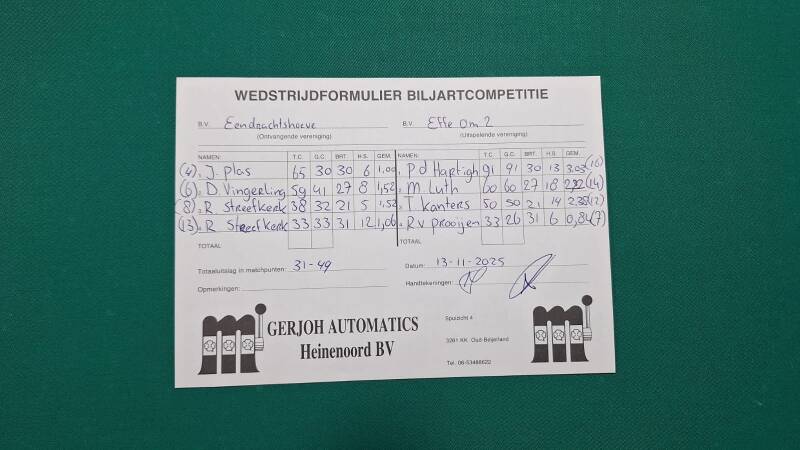 WEDSTRIJDFORMULIER BILJARTCOMPETITIE
B.V. Eendrachtshoeve B.V. Effe Om 2
(Ontvangende vereniging) (Uitspelende vereniging)
NAMEN: T.C. G.C. BRT. H.S. GEM. NAMEN: T.C. G.C. BRT. H.S. GEM.
(4) 1. J. Plas 65 30 30 6 1,00 1. P d Hartigh 91 91 30 13 3.03 (16)
(6) 2. D. Vingerling 59 41 27 8 1,52 2. M Luth 60 60 27 18 2,22 (14)
(8) 3. R. Streefkerk 38 32 21 5 1,52 3. T kanters 50 50 21 14 2.38 (12)
(13) 4. R Streefkerk 33 33 31 12 1,06 4. R v prooijen 33 26 31 6 0,84 (7)
TOTAAL TOTAAL
Totaaluitslag in matchpunten: 31-49 Datum: 13-11-2025
Opmerkingen: Handtekeningen:
GERJOH AUTOMATICS
Heinenoord BV
Spuizicht 4
3261 KK Oud-Beijerland
Tel. 06-53488622